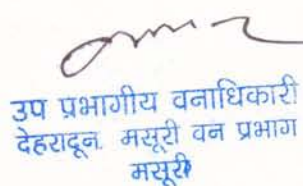 उप प्रभागीय वनाधिकारी
देहरादून मसूरी वन प्रभाग
मसूरी